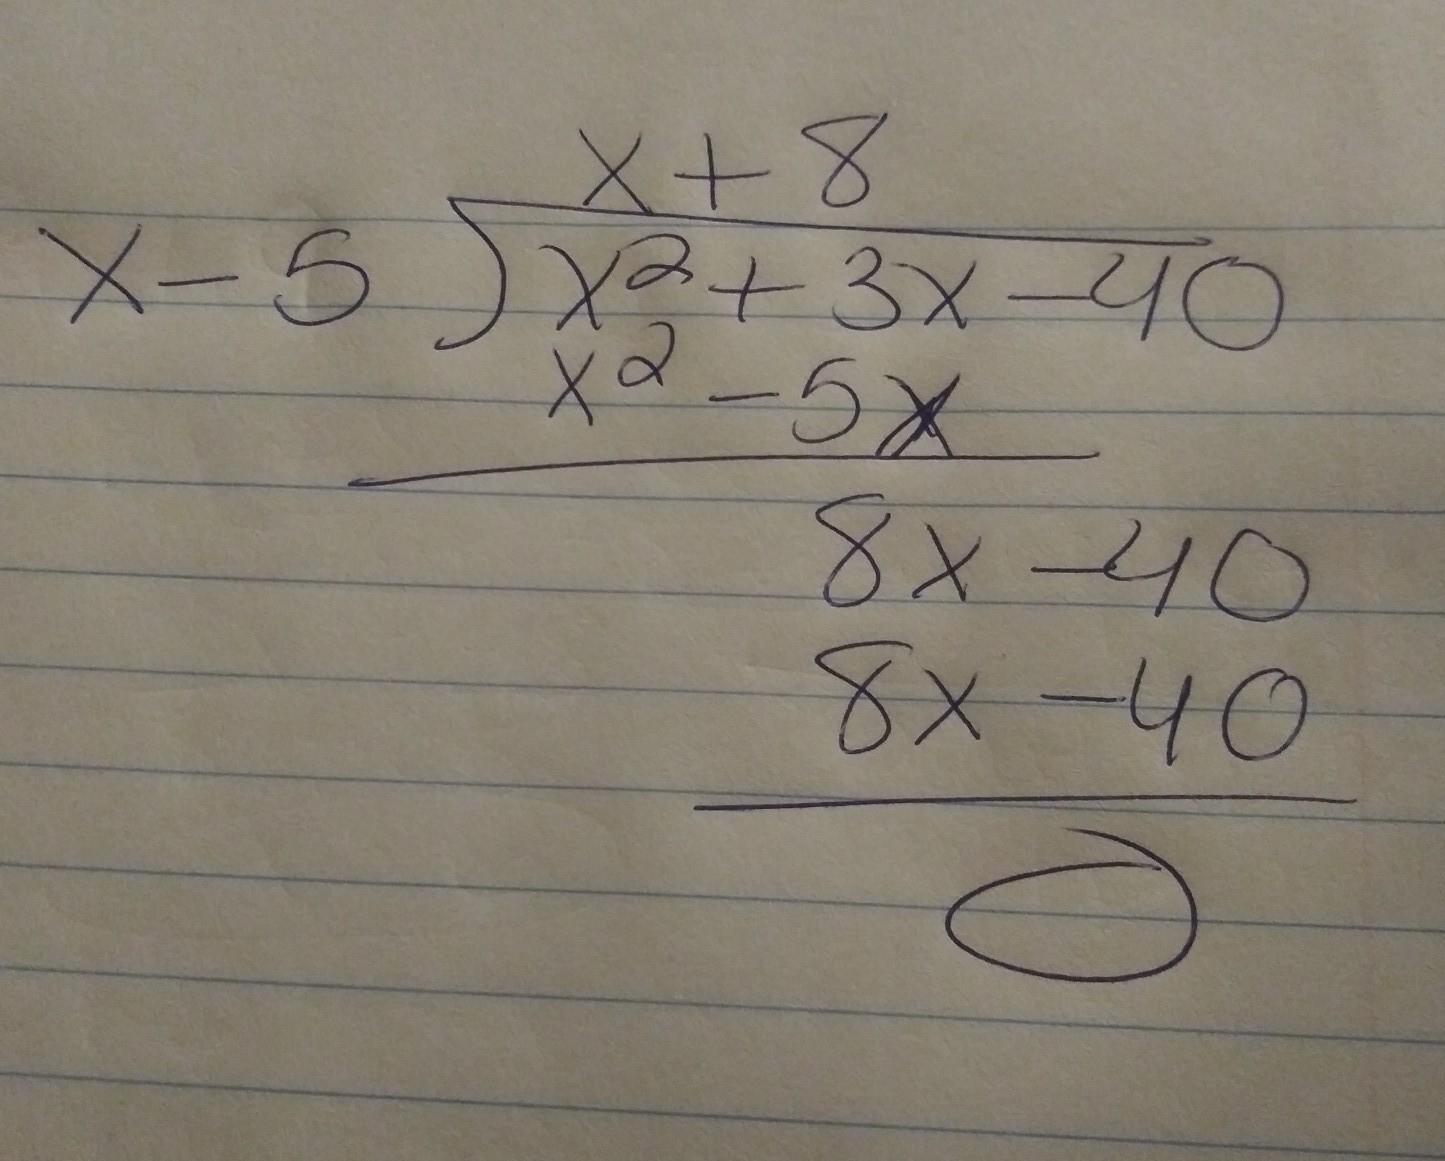 x + 8
x - 5 ) x² + 3x - 40
x² - 5x
8x - 40
8x - 40
0